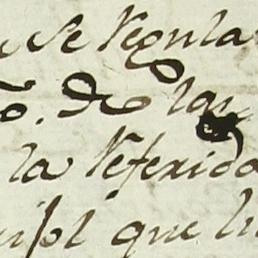 se regula
o. de las
la referido
que lu